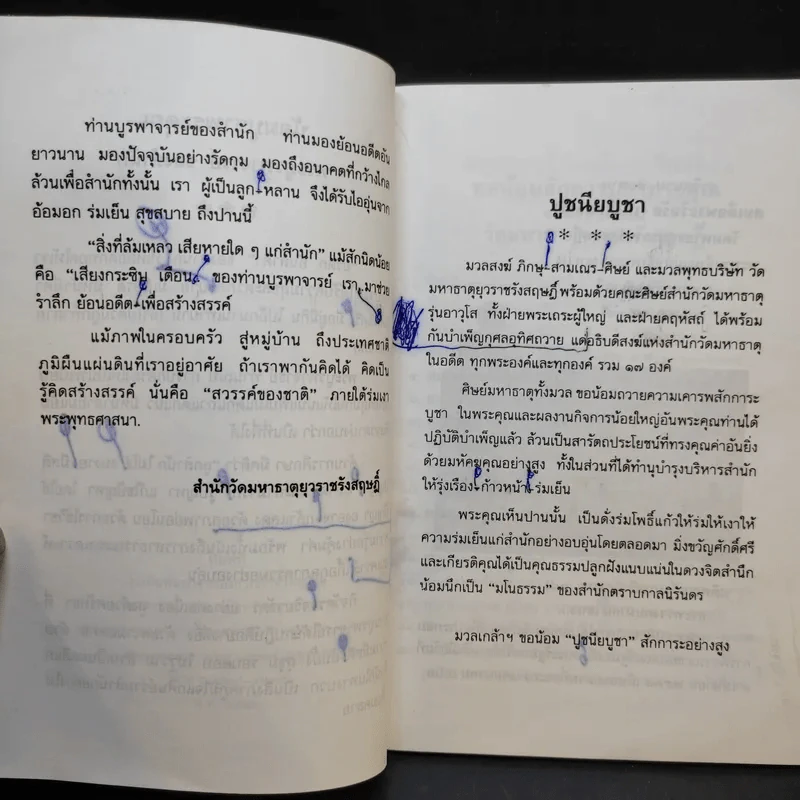 ท่านบูรพาจารย์ของสำนัก ท่านมองย้อนอดีตอัน
ยาวนาน มองปัจจุบันอย่างรัดกุม มองถึงอนาคตที่กว้างไกล
ล้วนเพื่อสำนักทั้งนั้น เรา ผู้เป็นลูก หลาน จึงได้รับไออุ่นจาก
อ้อมอก ร่มเย็น สุขสบาย ถึงปานนี้
“สิ่งที่ล้มเหลว เสียหายใด ๆ แก่สำนัก” แม้สักนิดน้อย
คือ “เสียงกระซิบ เตือน” ของท่านบูรพาจารย์ เรา มาช่วย
รำลึก ย้อนอดีต เพื่อสร้างสรรค์
แม้ภาพในครอบครัว สู่หมู่บ้าน ถึงประเทศชาติ
ภูมิผืนแผ่นดินที่เราอยู่อาศัย ถ้าเราพากันคิดได้ คิดเป็น
รู้คิดสร้างสรรค์ นั่นคือ “สวรรค์ของชาติ” ภายใต้ร่มเงา
พระพุทธศาสนา.
สำนักวัดมหาธาตุยุวราชรังสฤษฎิ์
ปูชนียบูชา
* * *
มวลสงฆ์ ภิกษุ-สามเณร-ศิษย์ และมวลพุทธบริษัท วัด
มหาธาตุยุวราชรังสฤษฎิ์ พร้อมด้วยคณะศิษย์สำนักวัดมหาธาตุ
รุ่นอาวุโส ทั้งฝ่ายพระเถระผู้ใหญ่ และฝ่ายคฤหัสถ์ ได้พร้อม
กันบำเพ็ญกุศลอุทิศถวาย แด่อธิบดีสงฆ์แห่งสำนักวัดมหาธาตุ
ในอดีต ทุกพระองค์และทุกองค์ รวม ๑๗ องค์
ศิษย์มหาธาตุทั้งมวล ขอน้อมถวายความเคารพสักการะ
บูชา ในพระคุณและผลงานกิจการน้อยใหญ่อันพระคุณท่านได้
ปฏิบัติบำเพ็ญแล้ว ล้วนเป็นสารัตถประโยชน์ที่ทรงคุณค่าอันยิ่ง
ด้วยมหัคฆคุณอย่างสูง ทั้งในส่วนที่ได้ทำนุบำรุงบริหารสำนัก
ให้รุ่งเรือง ก้าวหน้า ร่มเย็น
พระคุณเห็นปานนั้น เป็นดั่งร่มโพธิ์แก้วให้ร่มให้เงาให้
ความร่มเย็นแก่สำนักอย่างอบอุ่นโดยตลอดมา มิ่งขวัญศักดิ์ศรี
และเกียรติคุณได้เป็นคุณธรรมปลูกฝังแนบแน่นในดวงจิตสำนึก
น้อมนึกเป็น “มโนธรรม” ของสำนักตราบกาลนิรันดร
มวลเกล้าฯ ขอน้อม “ปูชนียบูชา” สักการะอย่างสูง